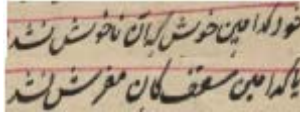 خود کدامین خوش که آن ناخوش نشد
یا کدامین سقف کان مفرش نشد